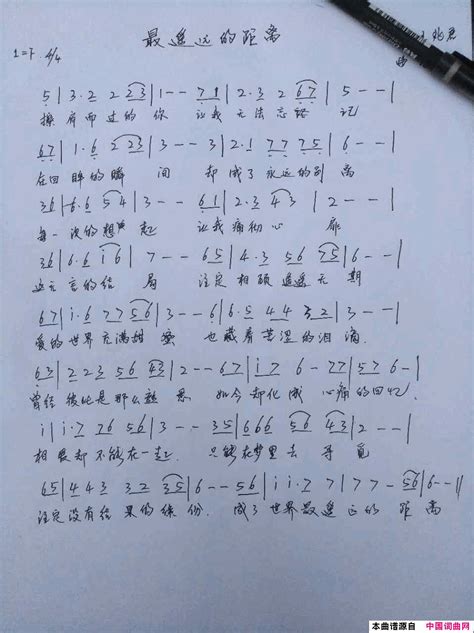 最遥远的距离
1=F 4/4
曲
5|3·2 2 23|1--71|2·3 2 67|5--|
擦肩而过的你 让我无法忘记
67|1·6 2 23|3--3|2·1 77 75|6--|
在回眸的瞬间 却成了永远的别离
36|6·6 54|3--61|2·3 43|2--|
每一次的想起 让我痛彻心扉
36|6·6 i6|7--65|4·3 56 75|6--|
这无言的结局 注定相顾遥遥无期
67|i·6 77 56|3--6|6·5 44 32|3--|
爱的世界充满甜蜜 也藏着苦涩的泪滴
63|2 23 56 43|2--67|i7 6-77|57 6-|
曾经彼此是那么熟悉 如今却化成心痛的回忆
i|i·7 76 56|3--35|666 56 43|2--|
相爱却不能在一起 只能在梦里去寻觅
65|4 43 32 35|6--56|ii·7 7|77-56|6--||
注定没有结果的缘份 成了世界最遥远的距离
本曲谱源自 中国词曲网